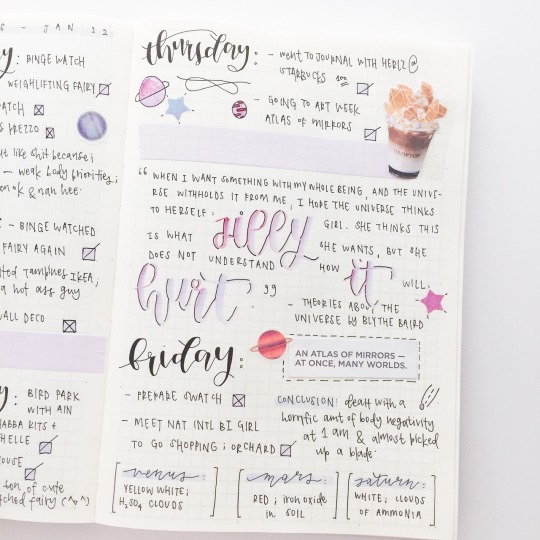 6 - JAN 12
y: BINGE WATCH
WEIGHLIFTING FAIRY
ATCH
S FREZZO
ut like shit because i
- weak body priorities;
en ok & nan hee.
- BINGE WATCHED
FAIRY AGAIN
ted Tampines IKEA,
a hot ass guy
WALL DECO
y: BIRD PARK
WITH AIN
ABBA KITS +
HELLE
OUSE
ton of cute
tched fairy (^v^)
thursday: - went TO JOURNAL WITH HERLZ @
STARBUCKS
- GOING TO ART WEEK
ATLAS OF MIRRORS
"WHEN I WANT SOMETHING WITH MY WHOLE BEING, AND THE UNIVE-
RSE WITHHOLDS IT FROM ME, I HOPE THE UNIVERSE THINKS
TO HERSELF: silly GIRL. SHE THINKS THIS
IS WHAT SHE WANTS, BUT SHE
DOES NOT UNDERSTAND HOW it WILL
hurt."
- THEORIES ABOUT THE
UNIVERSE BY BLYTHE BAIRD
friday:
AN ATLAS OF MIRRORS —
AT ONCE, MANY WORLDS.
- PREPARE SWATCH
- MEET NAT INTL BI GIRL
TO GO SHOPPING ; ORCHARD
CONCLUSION: dealt with a
horrific amt of body negativity
at 1 am & almost picked
up a blade.
venus:
YELLOW WHITE;
H2SO4 CLOUDS
mars:
RED ; iron oxide
in SOIL
saturn:
WHITE; CLOUDS
OF AMMONIA